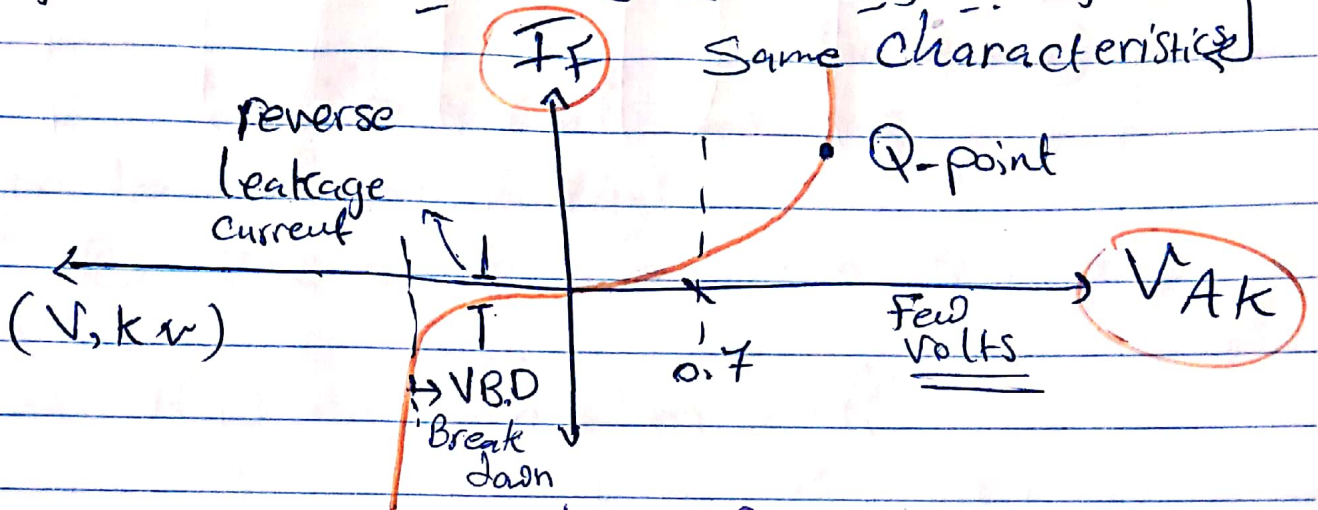 IF
Same characteristics]
reverse
leakage
current
Q-point
VAK
(V, kv)
Few
volts
0.7
VB.D
Break
down